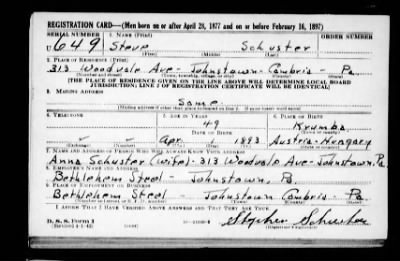 REGISTRATION CARD—(Men born on or after April 28, 1877 and on or before February 16, 1897)
SERIAL NUMBER 1. NAME (Print) ORDER NUMBER
U 649 Steve Schuster
(First) (Middle) (Last)
2. PLACE OF RESIDENCE (Print)
313 Woodvale Ave - Johnstown - Cambria - Pa
(Number and street) (Town, township, village, or city) (County) (State)
[THE PLACE OF RESIDENCE GIVEN ON THE LINE ABOVE WILL DETERMINE LOCAL BOARD
JURISDICTION; LINE 2 OF REGISTRATION CERTIFICATE WILL BE IDENTICAL]
3. MAILING ADDRESS
Same
[Mailing address if other than place indicated on line 2. If same insert word same]
4. TELEPHONE 5. AGE IN YEARS 6. PLACE OF BIRTH
49 Krumba
DATE OF BIRTH
Apr 1 1893 Austria-Hungary
(Exchange) (Number) (Mo.) (Day) (Yr.) (State or country)
7. NAME AND ADDRESS OF PERSON WHO WILL ALWAYS KNOW YOUR ADDRESS
Anna Schuster (wife) - 313 Woodvale Ave - Johnstown, Pa
8. EMPLOYER'S NAME AND ADDRESS
Bethlehem Steel - Johnstown, Pa.
9. PLACE OF EMPLOYMENT OR BUSINESS
Bethlehem Steel - Johnstown Cambria - Pa.
(Number and street or R. F. D. number) (Town) (County) (State)
I AFFIRM THAT I HAVE VERIFIED ABOVE ANSWERS AND THAT THEY ARE TRUE.
D. S. S. Form 1
Stephen Schuster